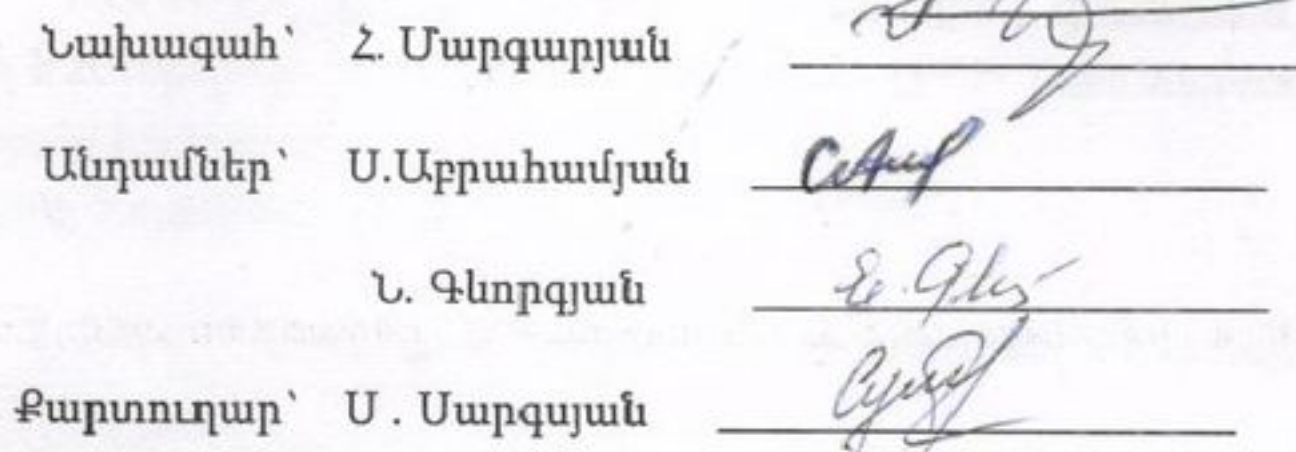 Նախագահ՝ Հ. Մարգարյան
Անդամներ՝ Ս.Աբրահամյան
Ն. Գևորգյան
Քարտուղար՝ Ս . Սարգսյան